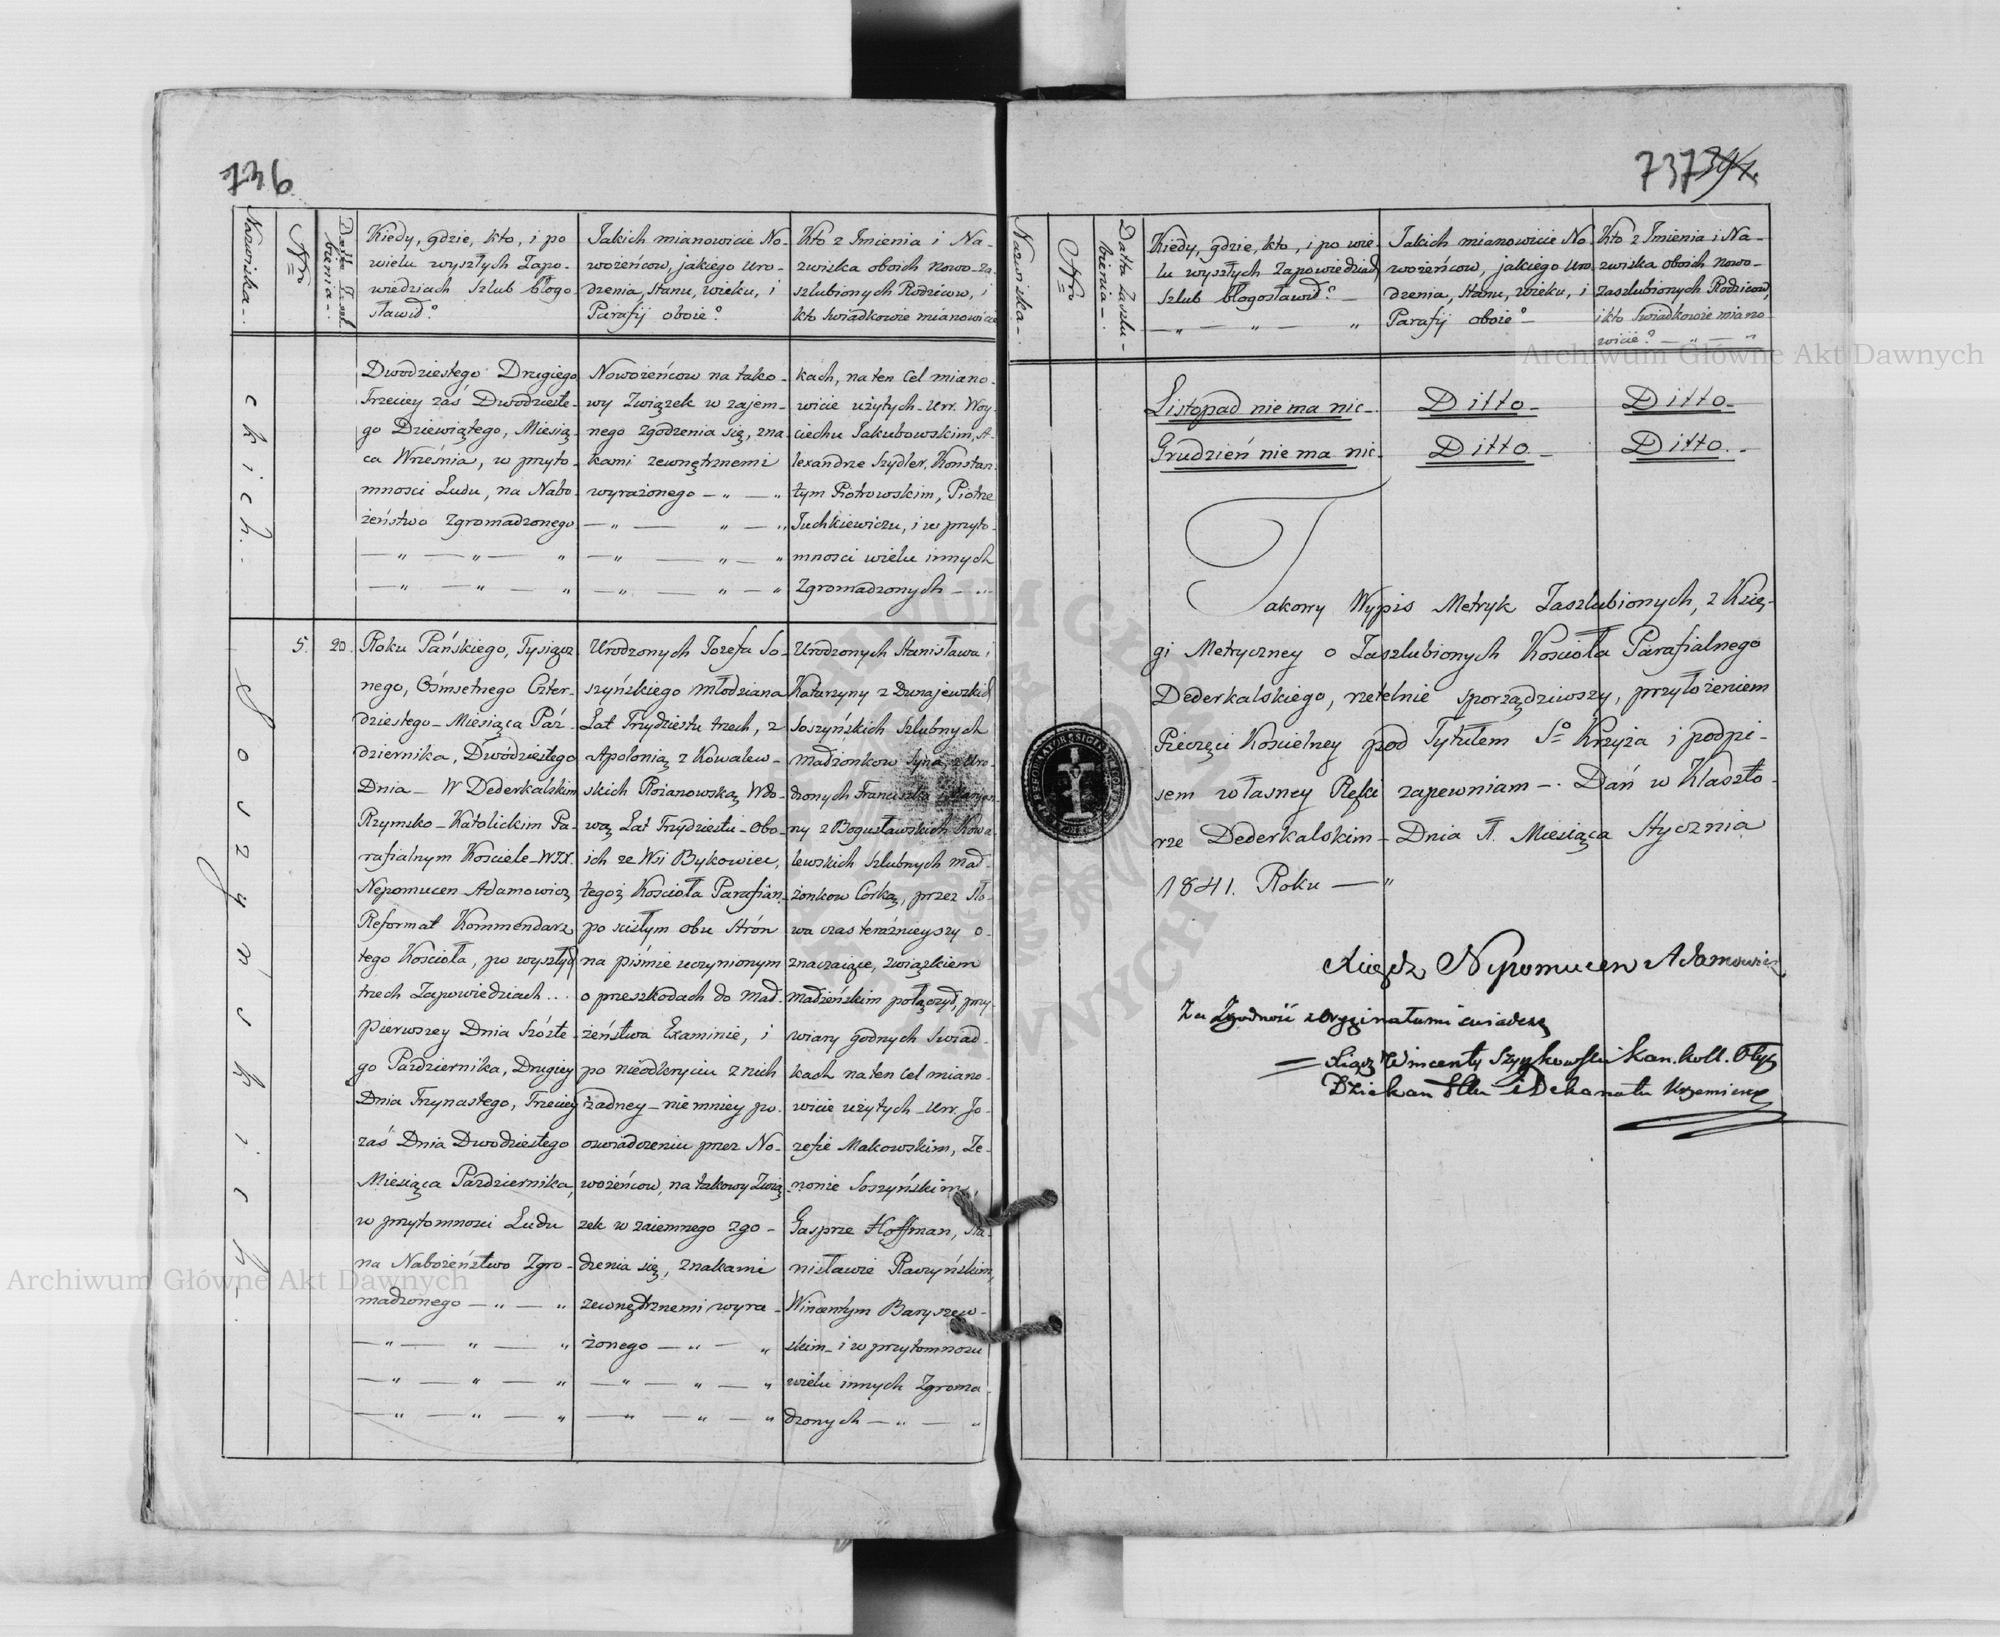 736
Nazwiska –.
Nro
Datta Zaszlu-
bienia –.
Kiedy, gdzie, kto, i po
wielu wyszłych Zapo-
wiedziach Szlub błogo
sławił?
Jakich mianowicie No-
wożeńcow, jakiego uro-
dzenia, stanu, wieku, i
Parafij oboie?
Kto z Imienia i Na-
zwiska oboich nowo-za-
szlubionych Rodzicow, i
kto Swiadkowie mianowicie
ckich.
Dwodziestego Drugiego
Trzeciey zaś Dwodzieste-
go Dziewiątego, Miesią-
ca Września, w przyto-
mnosci Ludu, na Nabo-
żeństwo Zgromadzonego
Nowożeńcow na tako-
wy Związek w zajem-
nego zgodzenia się, zna-
kami zewnętrznemi
wyrażonego – „ – „
kach, na ten Cel miano-
wicie użytych – Urr. Woy-
ciechu Jakubowskim, A-
lexandrze Szydler, Konstan-
tym Piotrowskim, Piotrze
Juchkiewiczu, i w przyto-
mnosci wielu innych
Zgromadzonych – „
Soszyńskich.
5.
20.
Roku Pańskiego, Tysiącz
nego, Ośmsetnego Czter-
dziestego – Miesiąca Paź-
dziernika, Dwódziestego
Dnia – W Dederkalskim
Rzymsko – Katolickim Pa-
rafialnym Kościele – WJX.
Nepomucen Adamowicz
Reformat Kommendarz
tego Kościoła, po wyszłych
trzech Zapowiedziach . . .
Pierwszey Dnia Szóste-
go Października, Drugiey
Dnia Trzynastego, Trzeciey
zaś Dnia Dwodziestego
Miesiąca Października,
w przytomnosci Ludu
na Nabożeństwo Zgro-
madzonego – „ – „
Urodzonych Jozefa So-
szyńskiego młodziana
Lat Trzydziestu trzech, z
Apolonią z Kowalew-
skich Roianowską, Wdo-
wą Lat Trzydziestu – Obo-
ich ze Wsi Bykowiec,
tegoż Kościoła Parafian.
po scisłym obu Strón
na piśmie uczynionym
o przeszkodach do Mał-
żeństwa Examinie, i
po nieodkryciu z nich
żadney – niemniey po-
oswiadczeniu przez No-
wożeńcow, na takowy Zwią
zek w zaiemnego zgo-
dzenia się, znakami
zewnętrznemi wyra-
żonego – „ – „
Urodzonych Stanisława i
Katarzyny z Dunajewskich
Soszyńskich Szlubnych
Małżonkow Syna, z Uro-
dzonych Franciszka i
ny z Bogusławskich Kowa-
lewskich Szlubnych Mał-
żonkow Corką, przez Sło-
wa czas teráźnieyszy o-
znaczaiące, związkiem
małżeńskim połączył, przy
wiary godnych Swiad-
kach na ten Cel miano-
wicie użytych – Urr. Jo-
zefie Makowskim, Ze-
nonie Soszyńskim,
Gasprze Hoffman, Sta-
nisławie Raczyńskim,
Wincentym Baryszew-
skim – i w przytomnosci
wielu innych Zgroma-
dzonych – „ – „
737
Nazwiska –
Nro
Datta Zaszlu-
bienia –.
Kiedy, gdzie, kto, i po wie
lu wyszłych Zapowiedziach
Szlub błogosławił? –
Jakich mianowicie No-
wożeńcow, jakiego Uro
dzenia, Stanu, Wieku, i
Parafij oboie? –
Kto z Imienia i Na-
zwiska oboich Nowo-
Zaszlubionych Rodzicow,
i kto Swiadkowie miano
wicie? – „ – „
Listopad nie ma nic –. Ditto – Ditto –
Grudzień nie ma nic – Ditto. – Ditto. –
Takowy Wypis Metryk Zaszlubionych, z Księ-
gi Metryczney o Zaszlubionych Koscioła Parafialnego
Dederkalskiego, rzetelnie sporządziwszy, przyłożeniem
Pieczęci Koscielney pod Tytułem So Krzyża i podpi-
sem własney Ręki zapewniam –. Dań w Klaszto-
rze Dederkalskim – Dnia 1. Miesiąca Stycznia
1841. Roku – „
Xiądz Nepomucen Adamowicz
Za Zgodność z Oryginałami swiadczę
Xiądz Wincenty Szypkowski Kan. Koll. Ołyc
Dziekan Sttu i Dekanatu Krzemienc
Archiwum Główne Akt Dawnych
Archiwum Główne Akt Dawnych